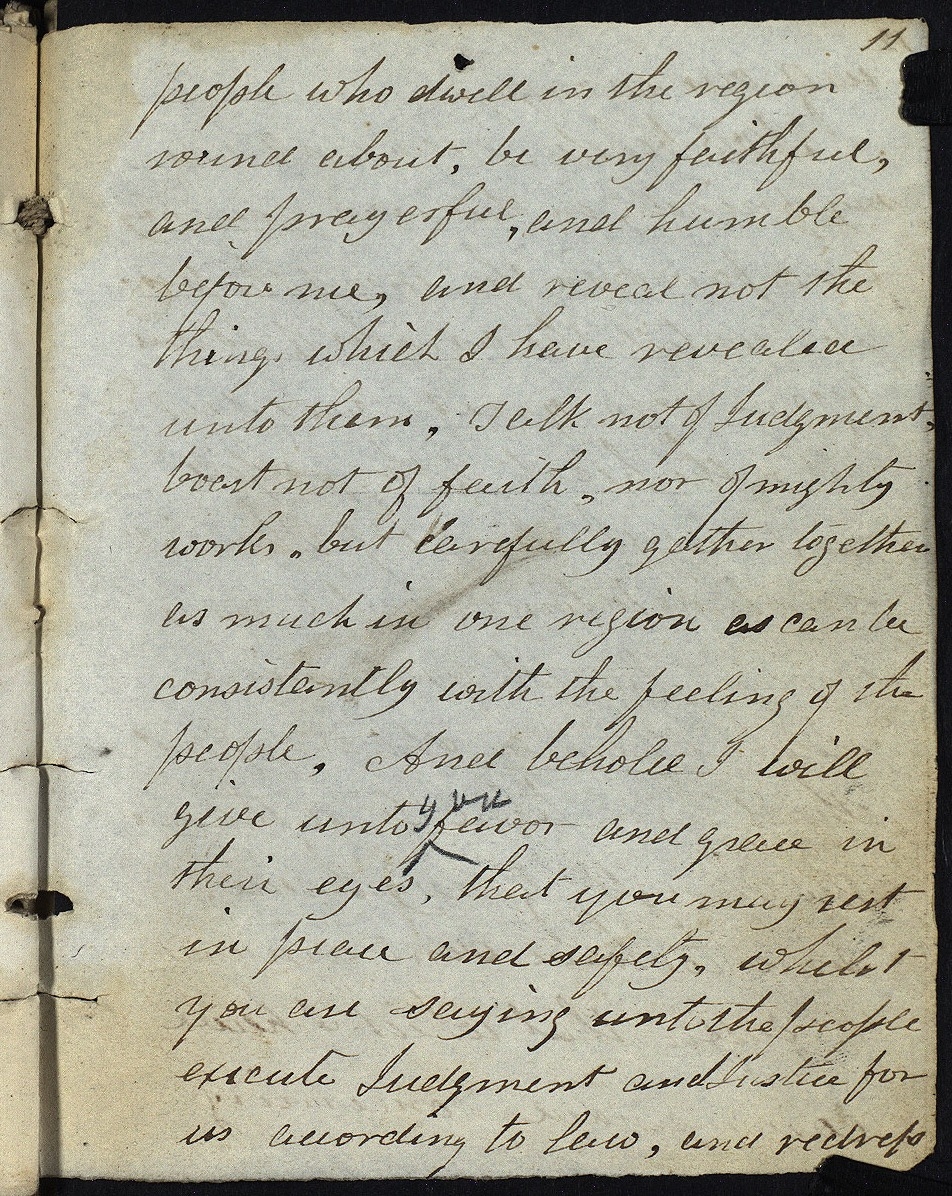 11
people who dwell in the region
round about, be very faithful,
and prayerful, and humble
before me, and reveal not the
things which I have revealed
unto them. Talk not of Judgment,
boast not of faith, nor of mighty
works, but carefully gather together
as much in one region as can be
consistantly with the feeling of the
people. And behold I will
you
give unto favor and grace in
their eyes, that you may rest
in peace and safety, whilst
you are saying unto the people
execute Judgment and Justice for
us according to law, and redress